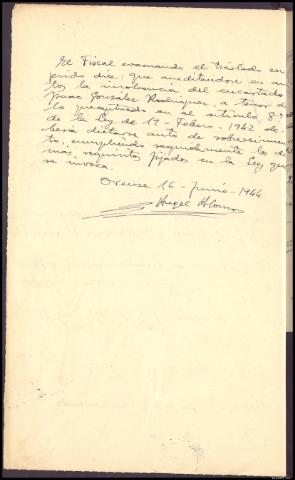 El Fiscal evacuando el traslado con-
ferido dice: que acreditandose en au-
tos la insolvencia del encartado
Isaac González Rodriguez, a tenor de
lo preceptuado en el articulo 8º
de la Ley de 19 - Febrero - 1942 de-
berá dictarse auto de sobreseimien-
to, cumpliendo seguidamente los de-
más requisitos fijados en la Ley que
se invoca.
Orense 16 - Junio - 1944
Angel Alonso